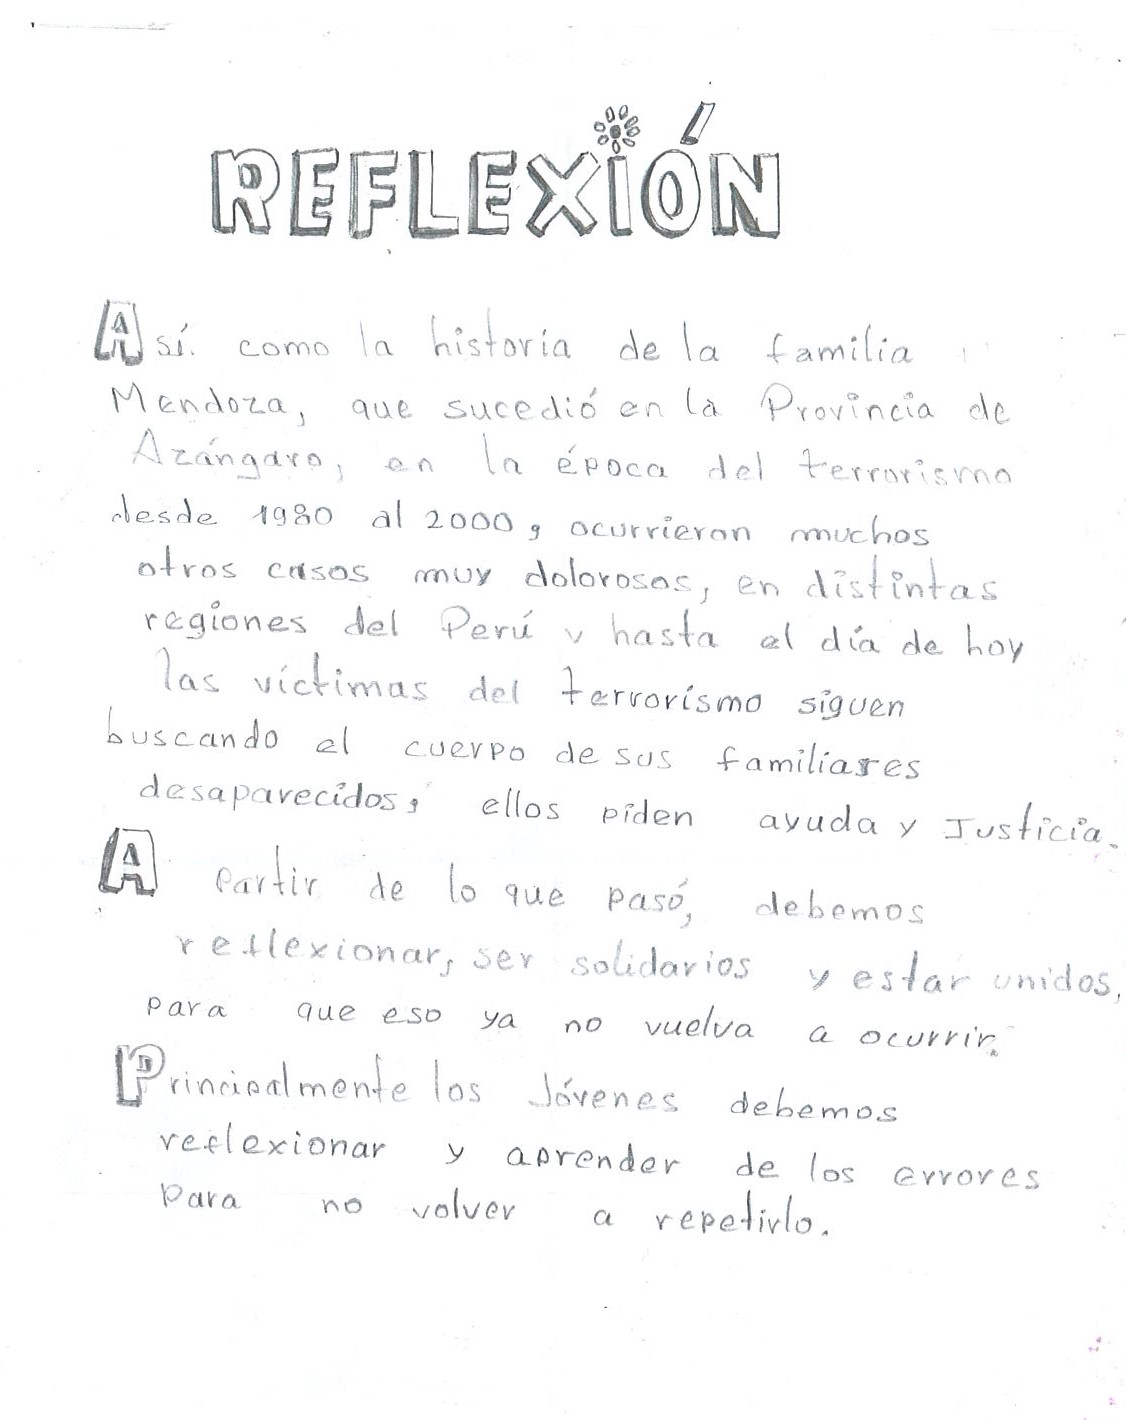 REFLEXIÓN
Así como la historia de la familia
Mendoza, que sucedió en la Provincia de
Azángaro, en la época del terrorismo
desde 1980 al 2000, ocurrieron muchos
otros casos muy dolorosos, en distintas
regiones del Perú y hasta el día de hoy
las víctimas del terrorismo siguen
buscando el cuerpo de sus familiares
desaparecidos, ellos piden ayuda y Justicia.
A partir de lo que pasó, debemos
reflexionar, ser solidarios y estar unidos,
para que eso ya no vuelva a ocurrir.
Principalmente los Jóvenes debemos
reflexionar y aprender de los errores
para no volver a repetirlo.